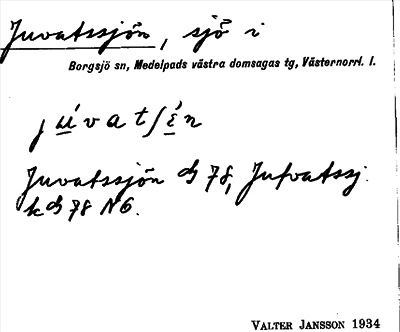 Juvatssjön, sjö i
Borgsjö sn, Medelpads västra domsagas tg, Västernorrl. l.
júvatʃén
Juvatssjön 78, Jufvatssj.
78 N6.
VALTER JANSSON 1934